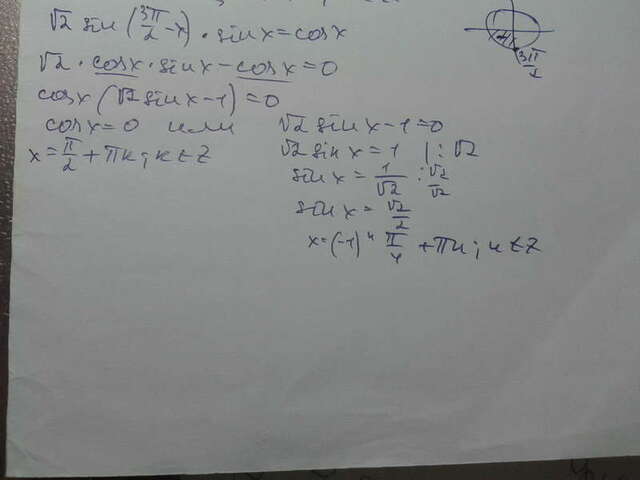 √2 sin (3π/2 - x) · sin x = cos x
√2 · cos x · sin x - cos x = 0
cos x (√2 sin x - 1) = 0
cos x = 0 или √2 sin x - 1 = 0
x = π/2 + πk; k ∈ Z √2 sin x = 1 | : √2
sin x = 1/√2 · √2/√2
sin x = √2/2
x = (-1)ⁿ π/4 + πn; n ∈ Z
3π/2